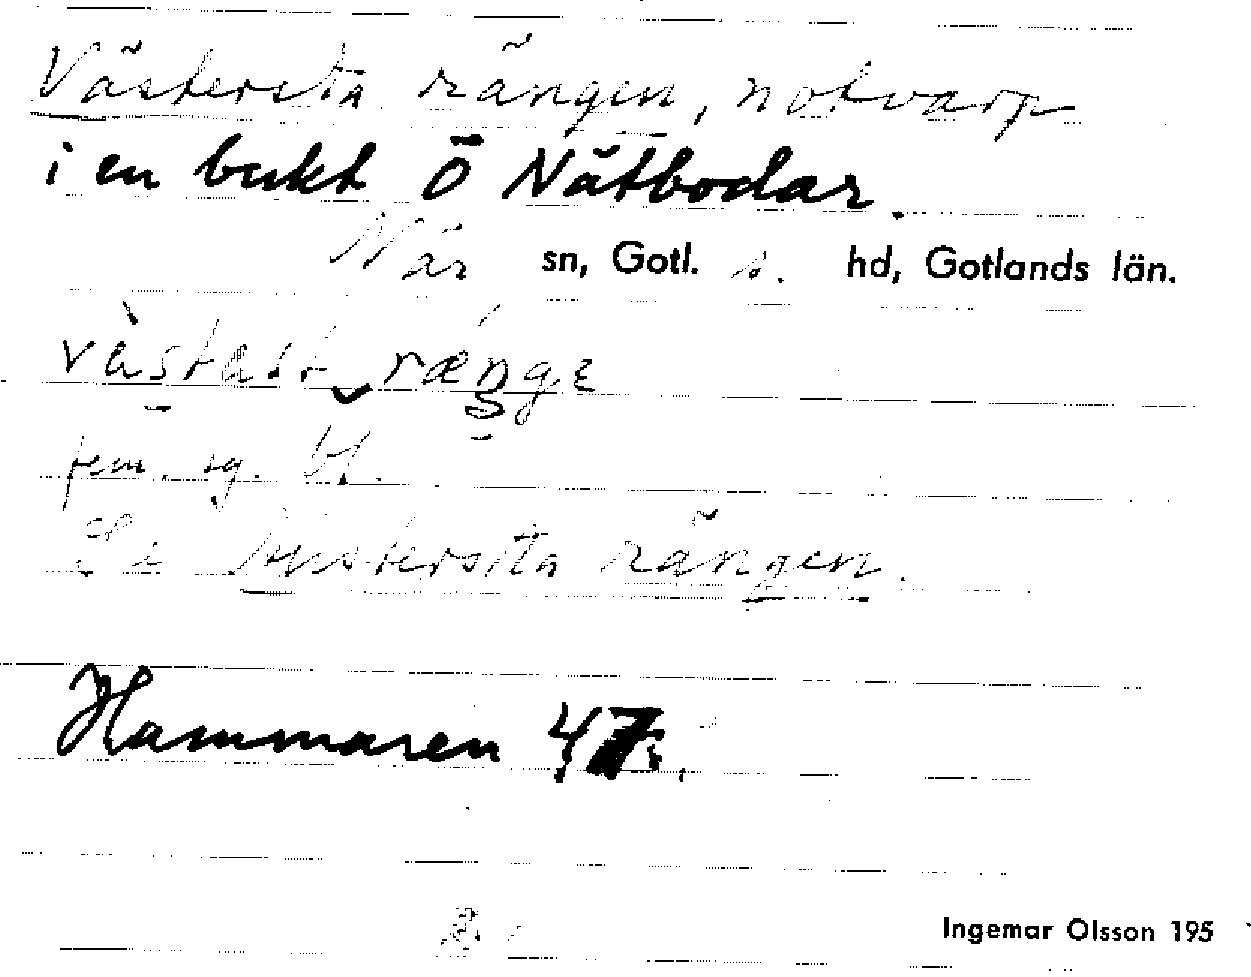 Västersta rängen, notvarp
i en bukt Ö Nätbodar.
När sn, Gotl. s. hd, Gotlands län.
västast ræŋgɛ
fem. sg. bf.
Se Austersta rängen.
Hammaren 47
Ingemar Olsson 195